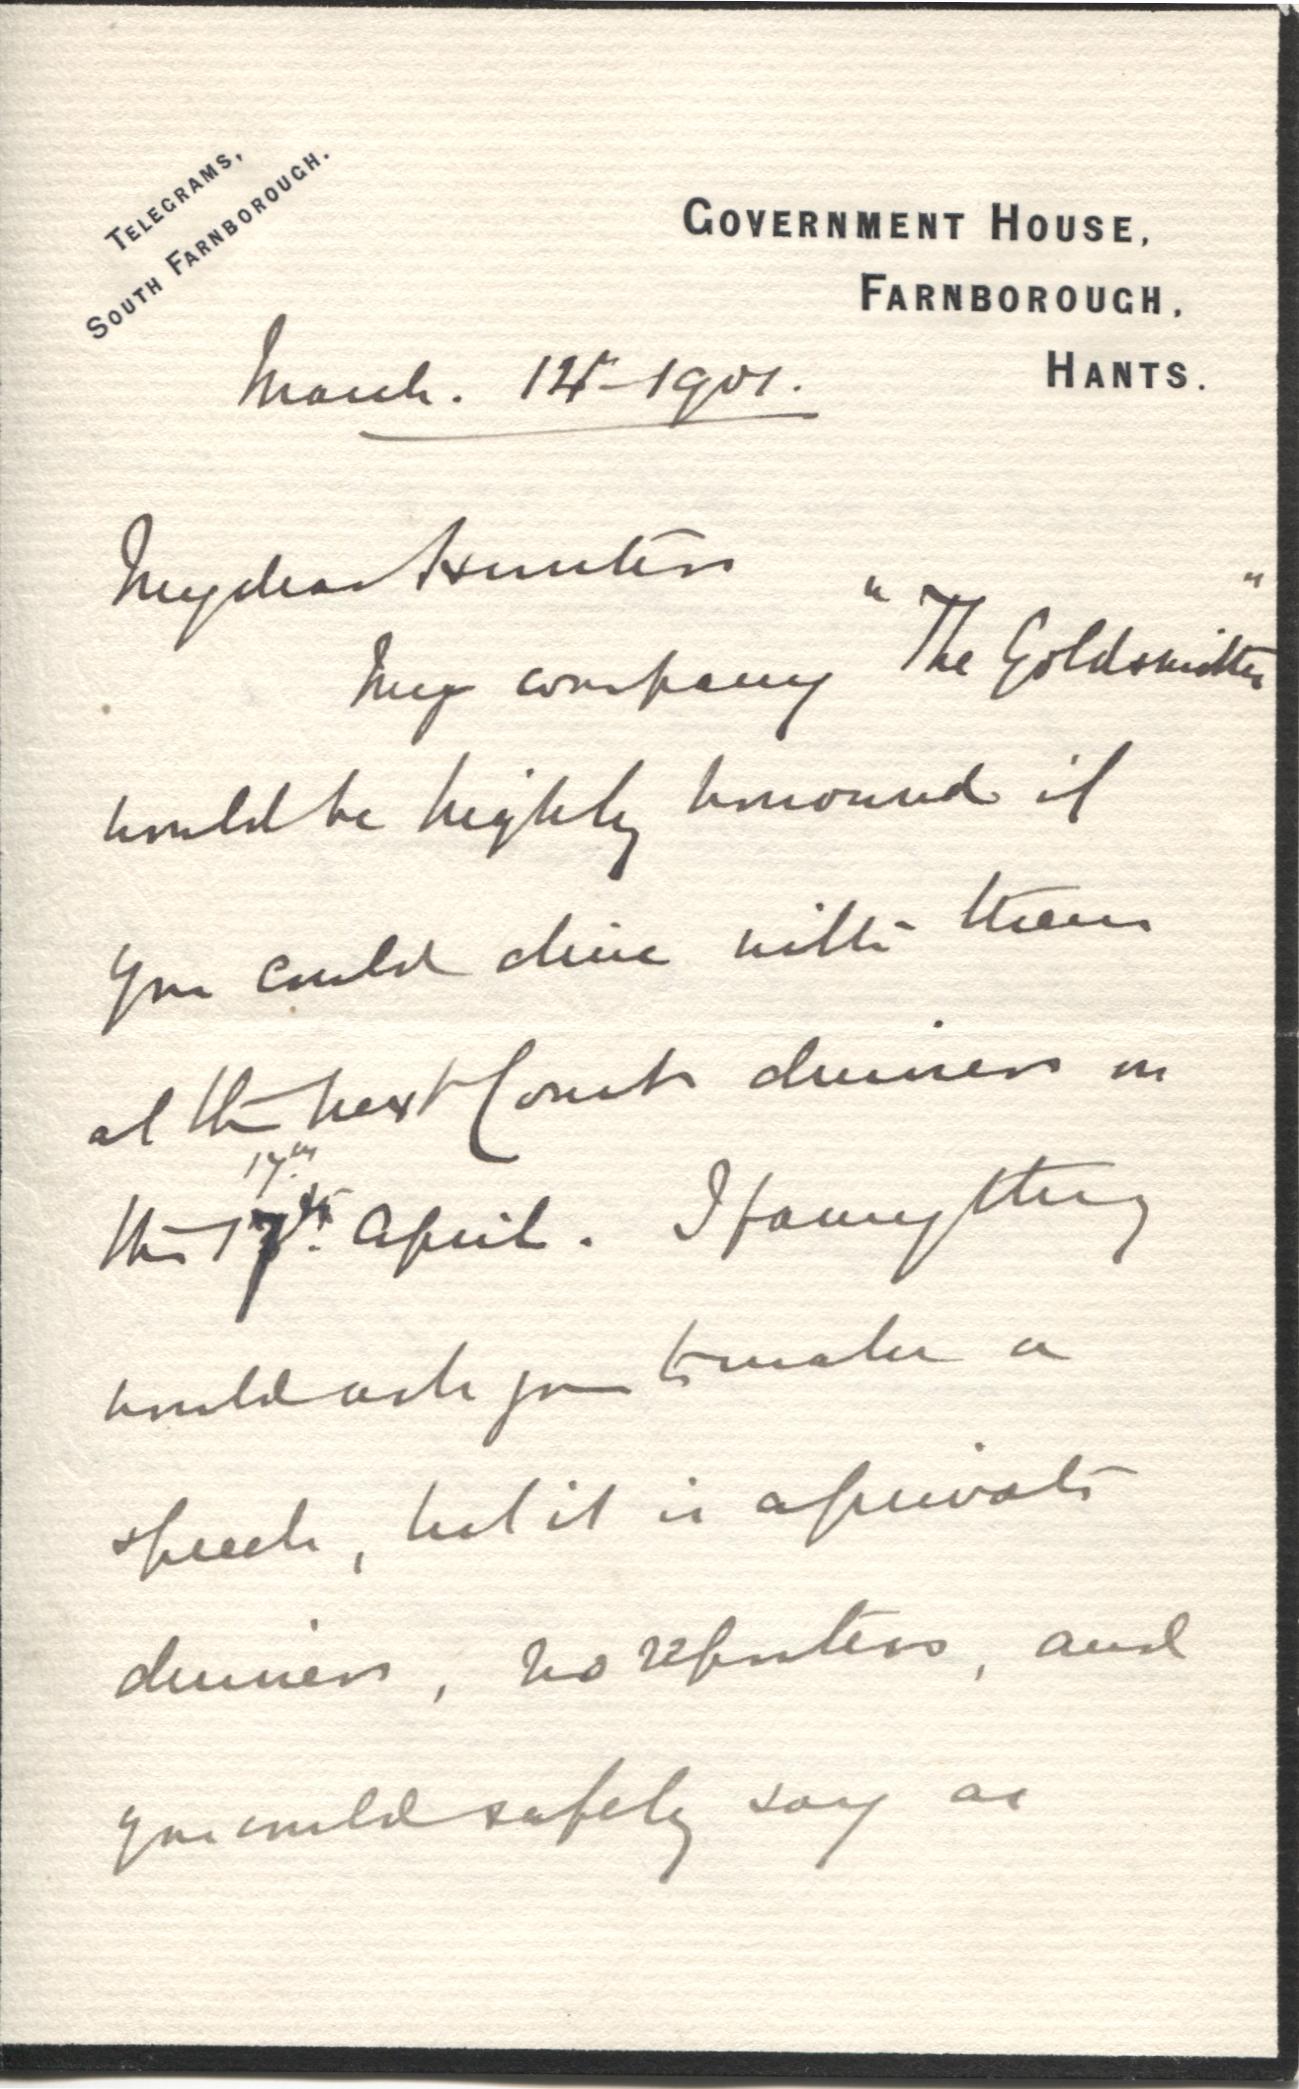 TELEGRAMS,
SOUTH FARNBOROUGH.
GOVERNMENT HOUSE,
FARNBOROUGH,
HANTS.
March. 12th 1901.
My dear Hunter
My company "The Goldsmiths"
would be highly honoured if
you could dine with them
at the next Court dinner on
17th
the 17th. April. I fancy they
would ask you to make a
speech, but it is a private
dinner, no reporters, and
you could safely say as